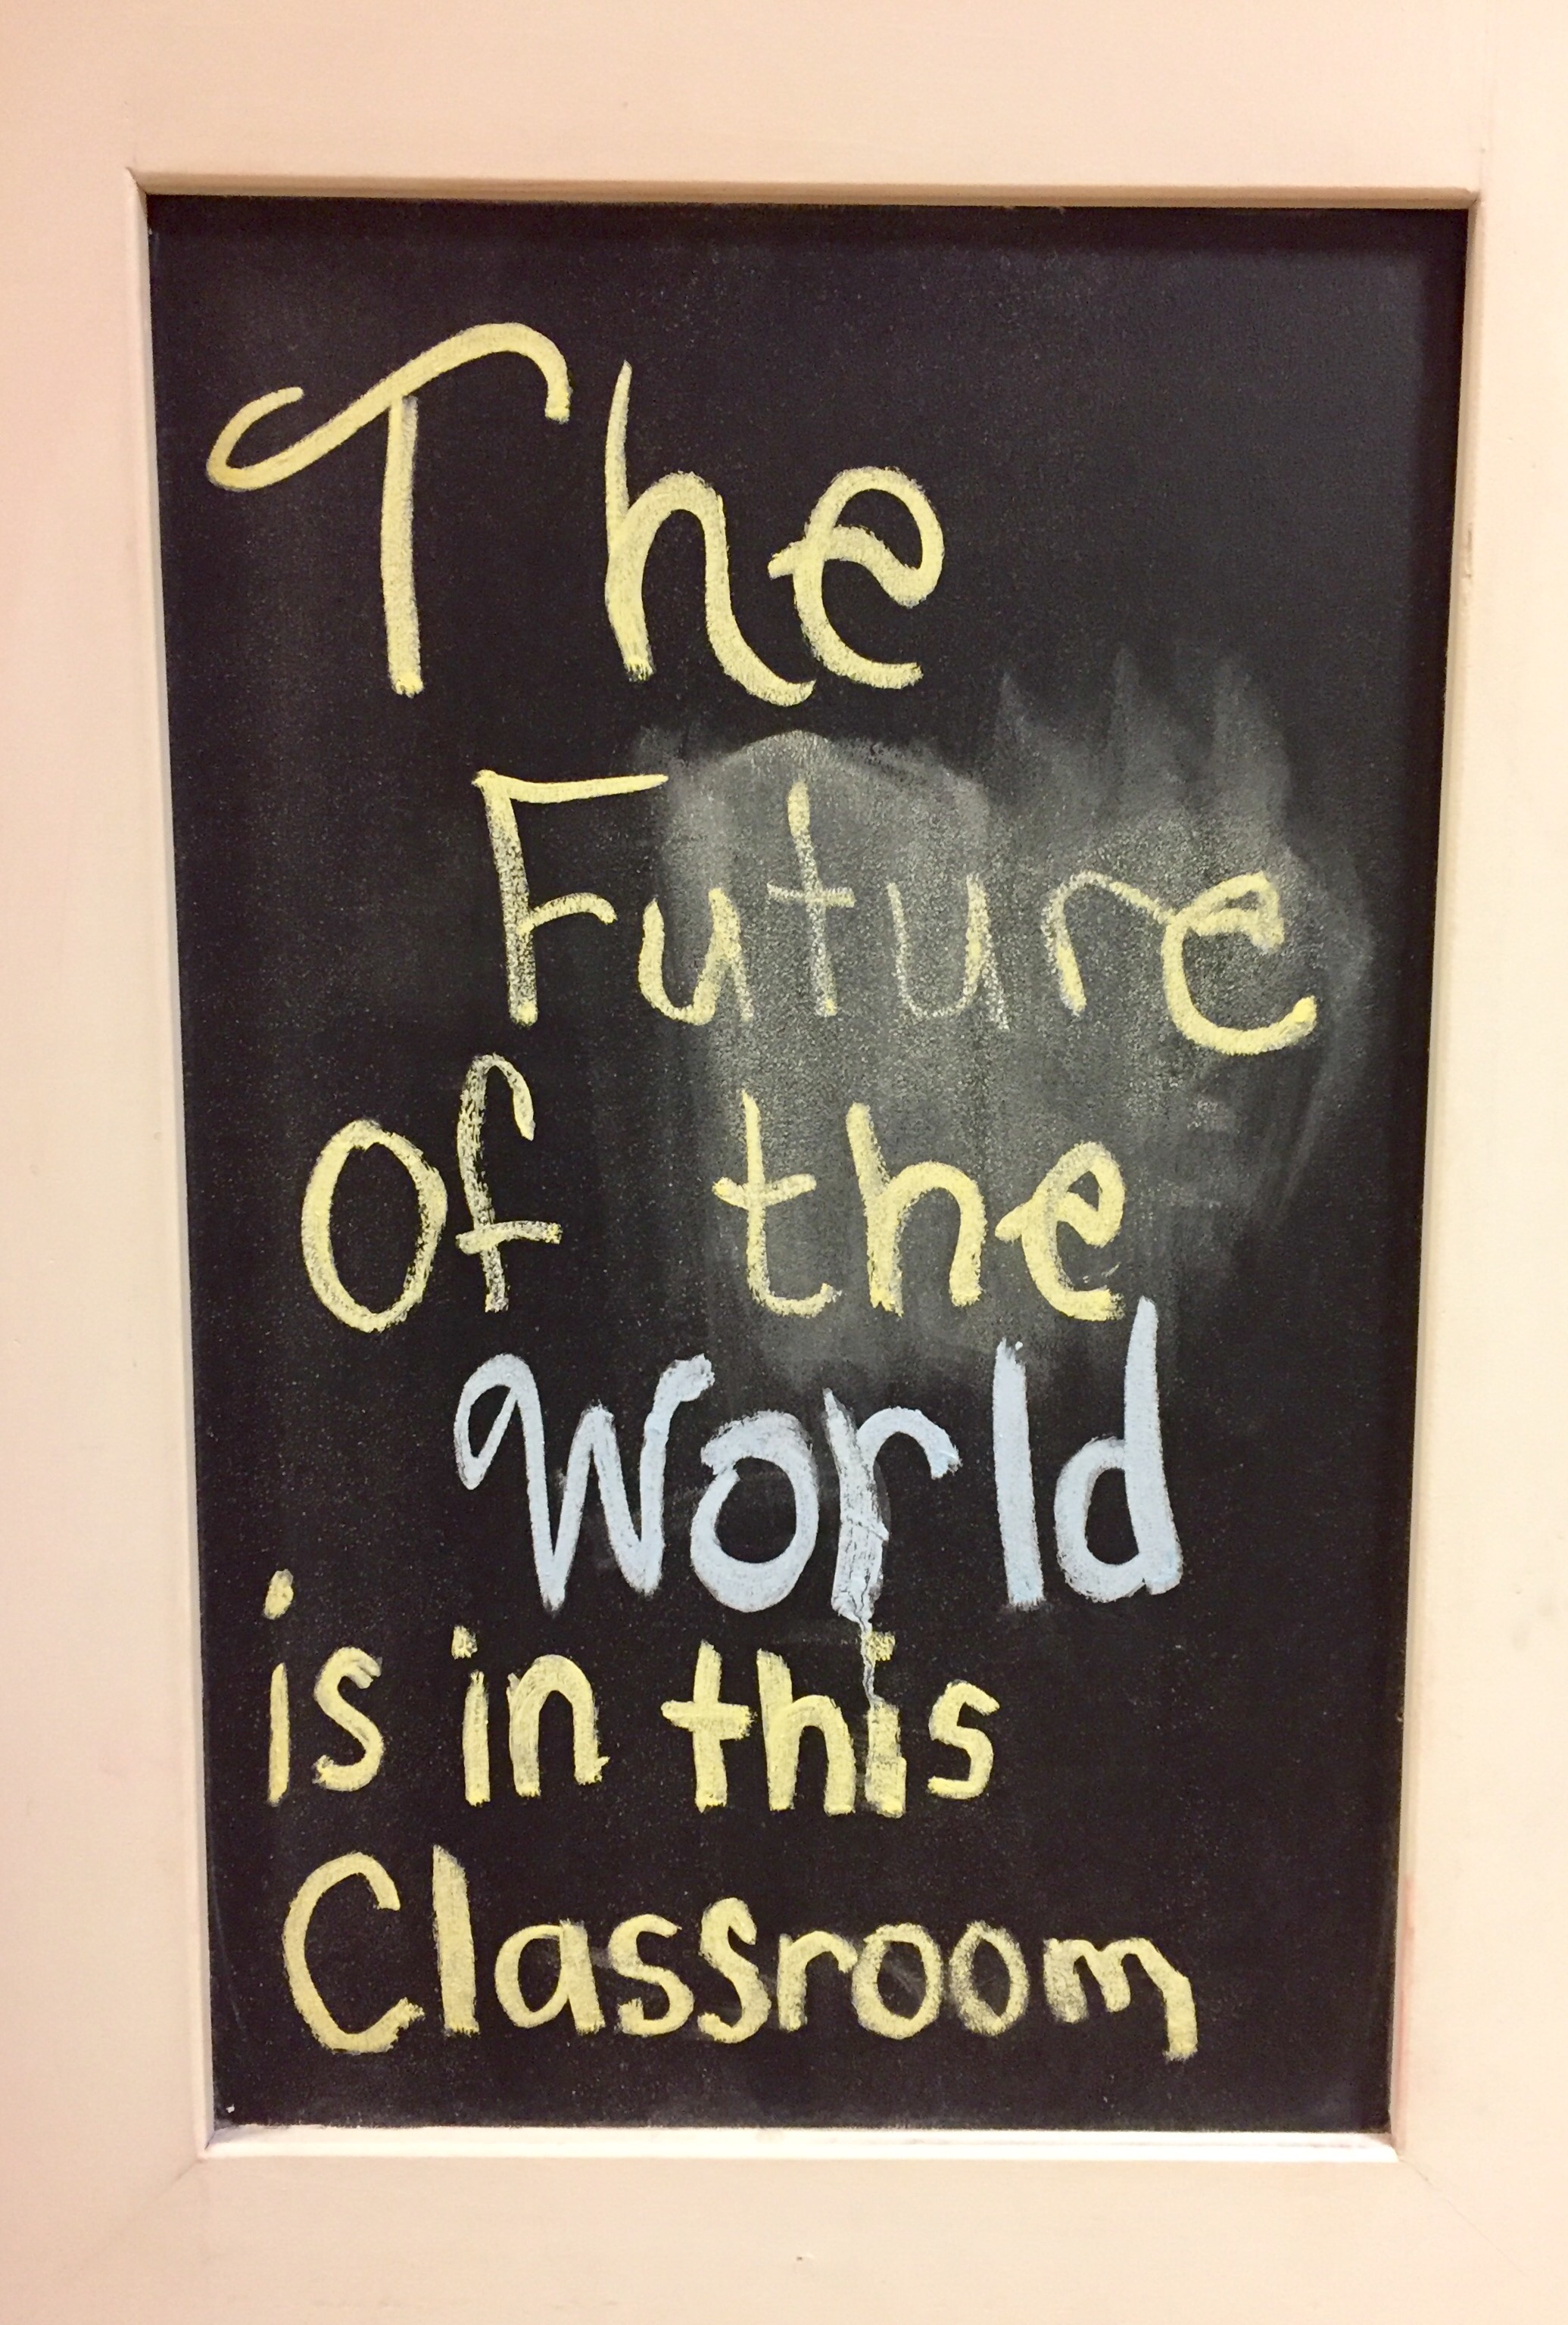 The
Future
Of the
World
is in this
Classroom